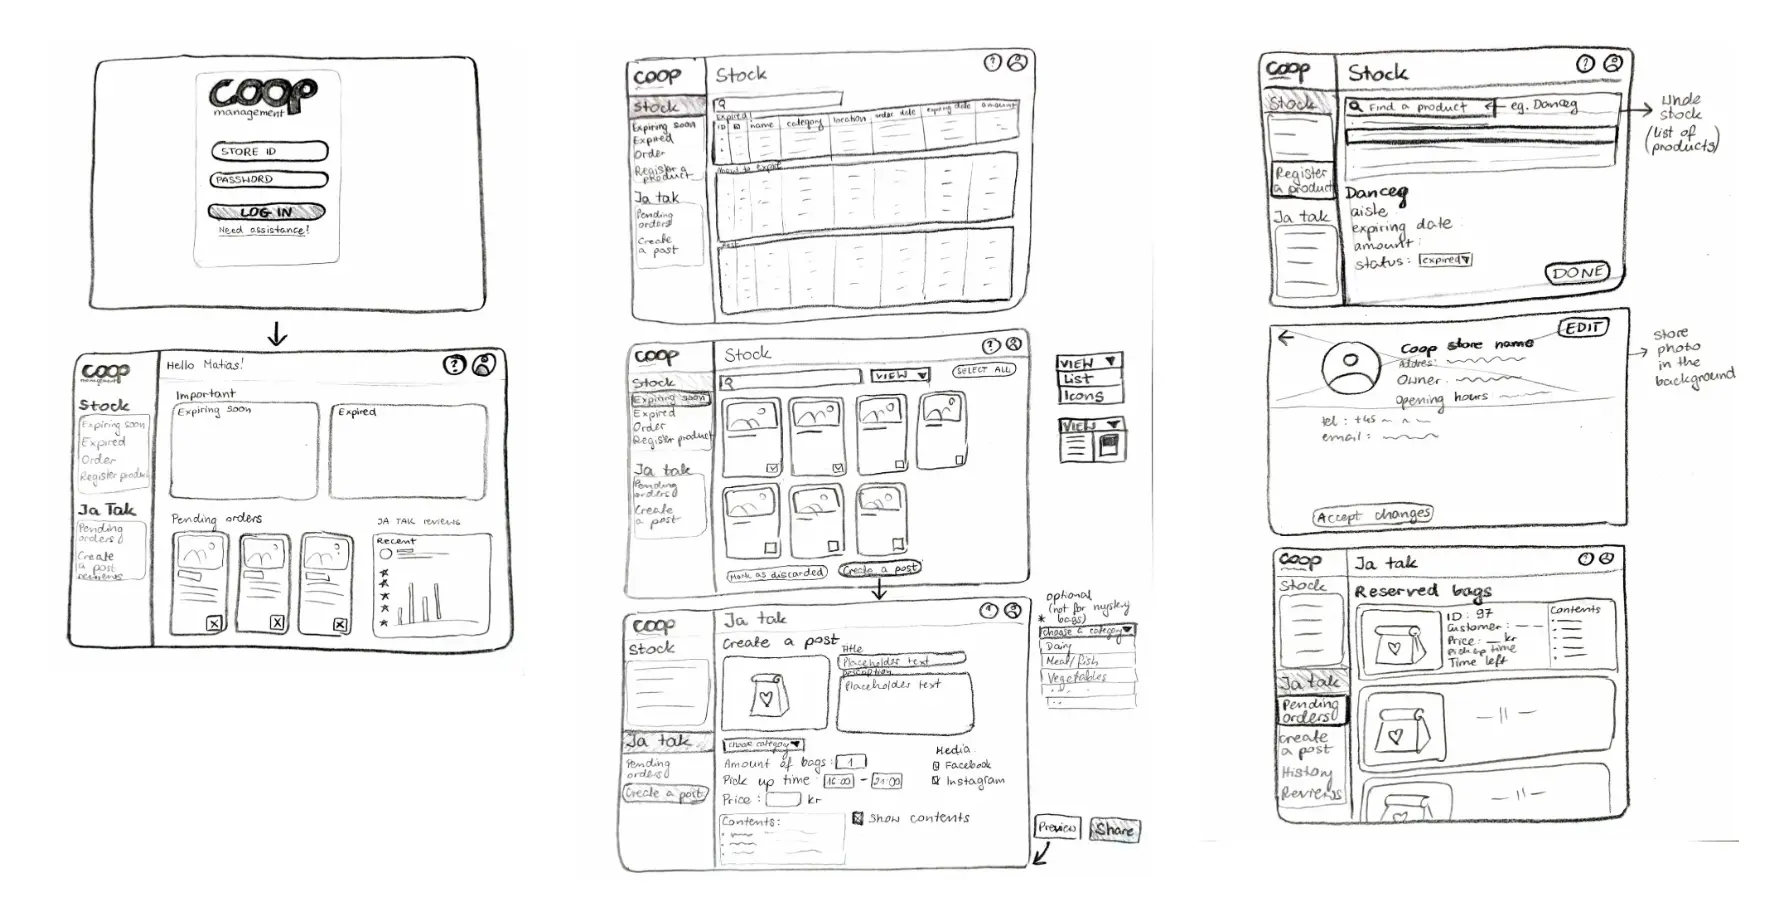 coop
management
STORE ID
PASSWORD
LOG IN
Need assistance!
coop
management
Hello Matias!
?
Stock
Expiring soon
Expired
Order
Register product
Ja Tak
Pending
orders
Create
a post
reviews
Important
Expiring soon
Expired
Pending orders
JA TAK reviews
Recent
coop
Stock
?
Stock
Expiring soon
Expired
Order
Register a
product
Ja tak
Pending
orders
Create
a post
Expired
ID name category location order date expiring date amount
About to expire
coop
Stock
?
Stock
Expiring soon
Expired
Order
Register product
Ja tak
Pending
orders
Create
a post
VIEW
SELECT ALL
Mark as discarded
Create a post
VIEW
List
Icons
VIEW
coop
Ja tak
?
Stock
Ja tak
Pending
orders
Create a post
Create a post
Title
Placeholder text
Description
Placeholder text
choose category
Amount of bags: 1
Pick up time: 16:00 - 21:00
Price: kr
Contents:
Show contents
Media
Facebook
Instagram
optional
(not for mystery
* bags)
choose a category
Dairy
Meat/fish
Vegetables
Preview
Share
coop
Stock
?
Stock
Register
a product
Ja tak
Find a product
eg. Danceg
Danceg
aisle
expiring date:
amount:
status: expired
DONE
whole
stock
(list of
products)
EDIT
Coop store name
Adress:
Owner
Opening hours
tel: +45
email:
Accept changes
store
photo
in the
background
coop
Ja tak
?
Stock
Ja tak
Pending
orders
create
a post
History
Reviews
Reserved bags
ID: 97
Customer:
Price: kr
Pick up time
Time left
Contents